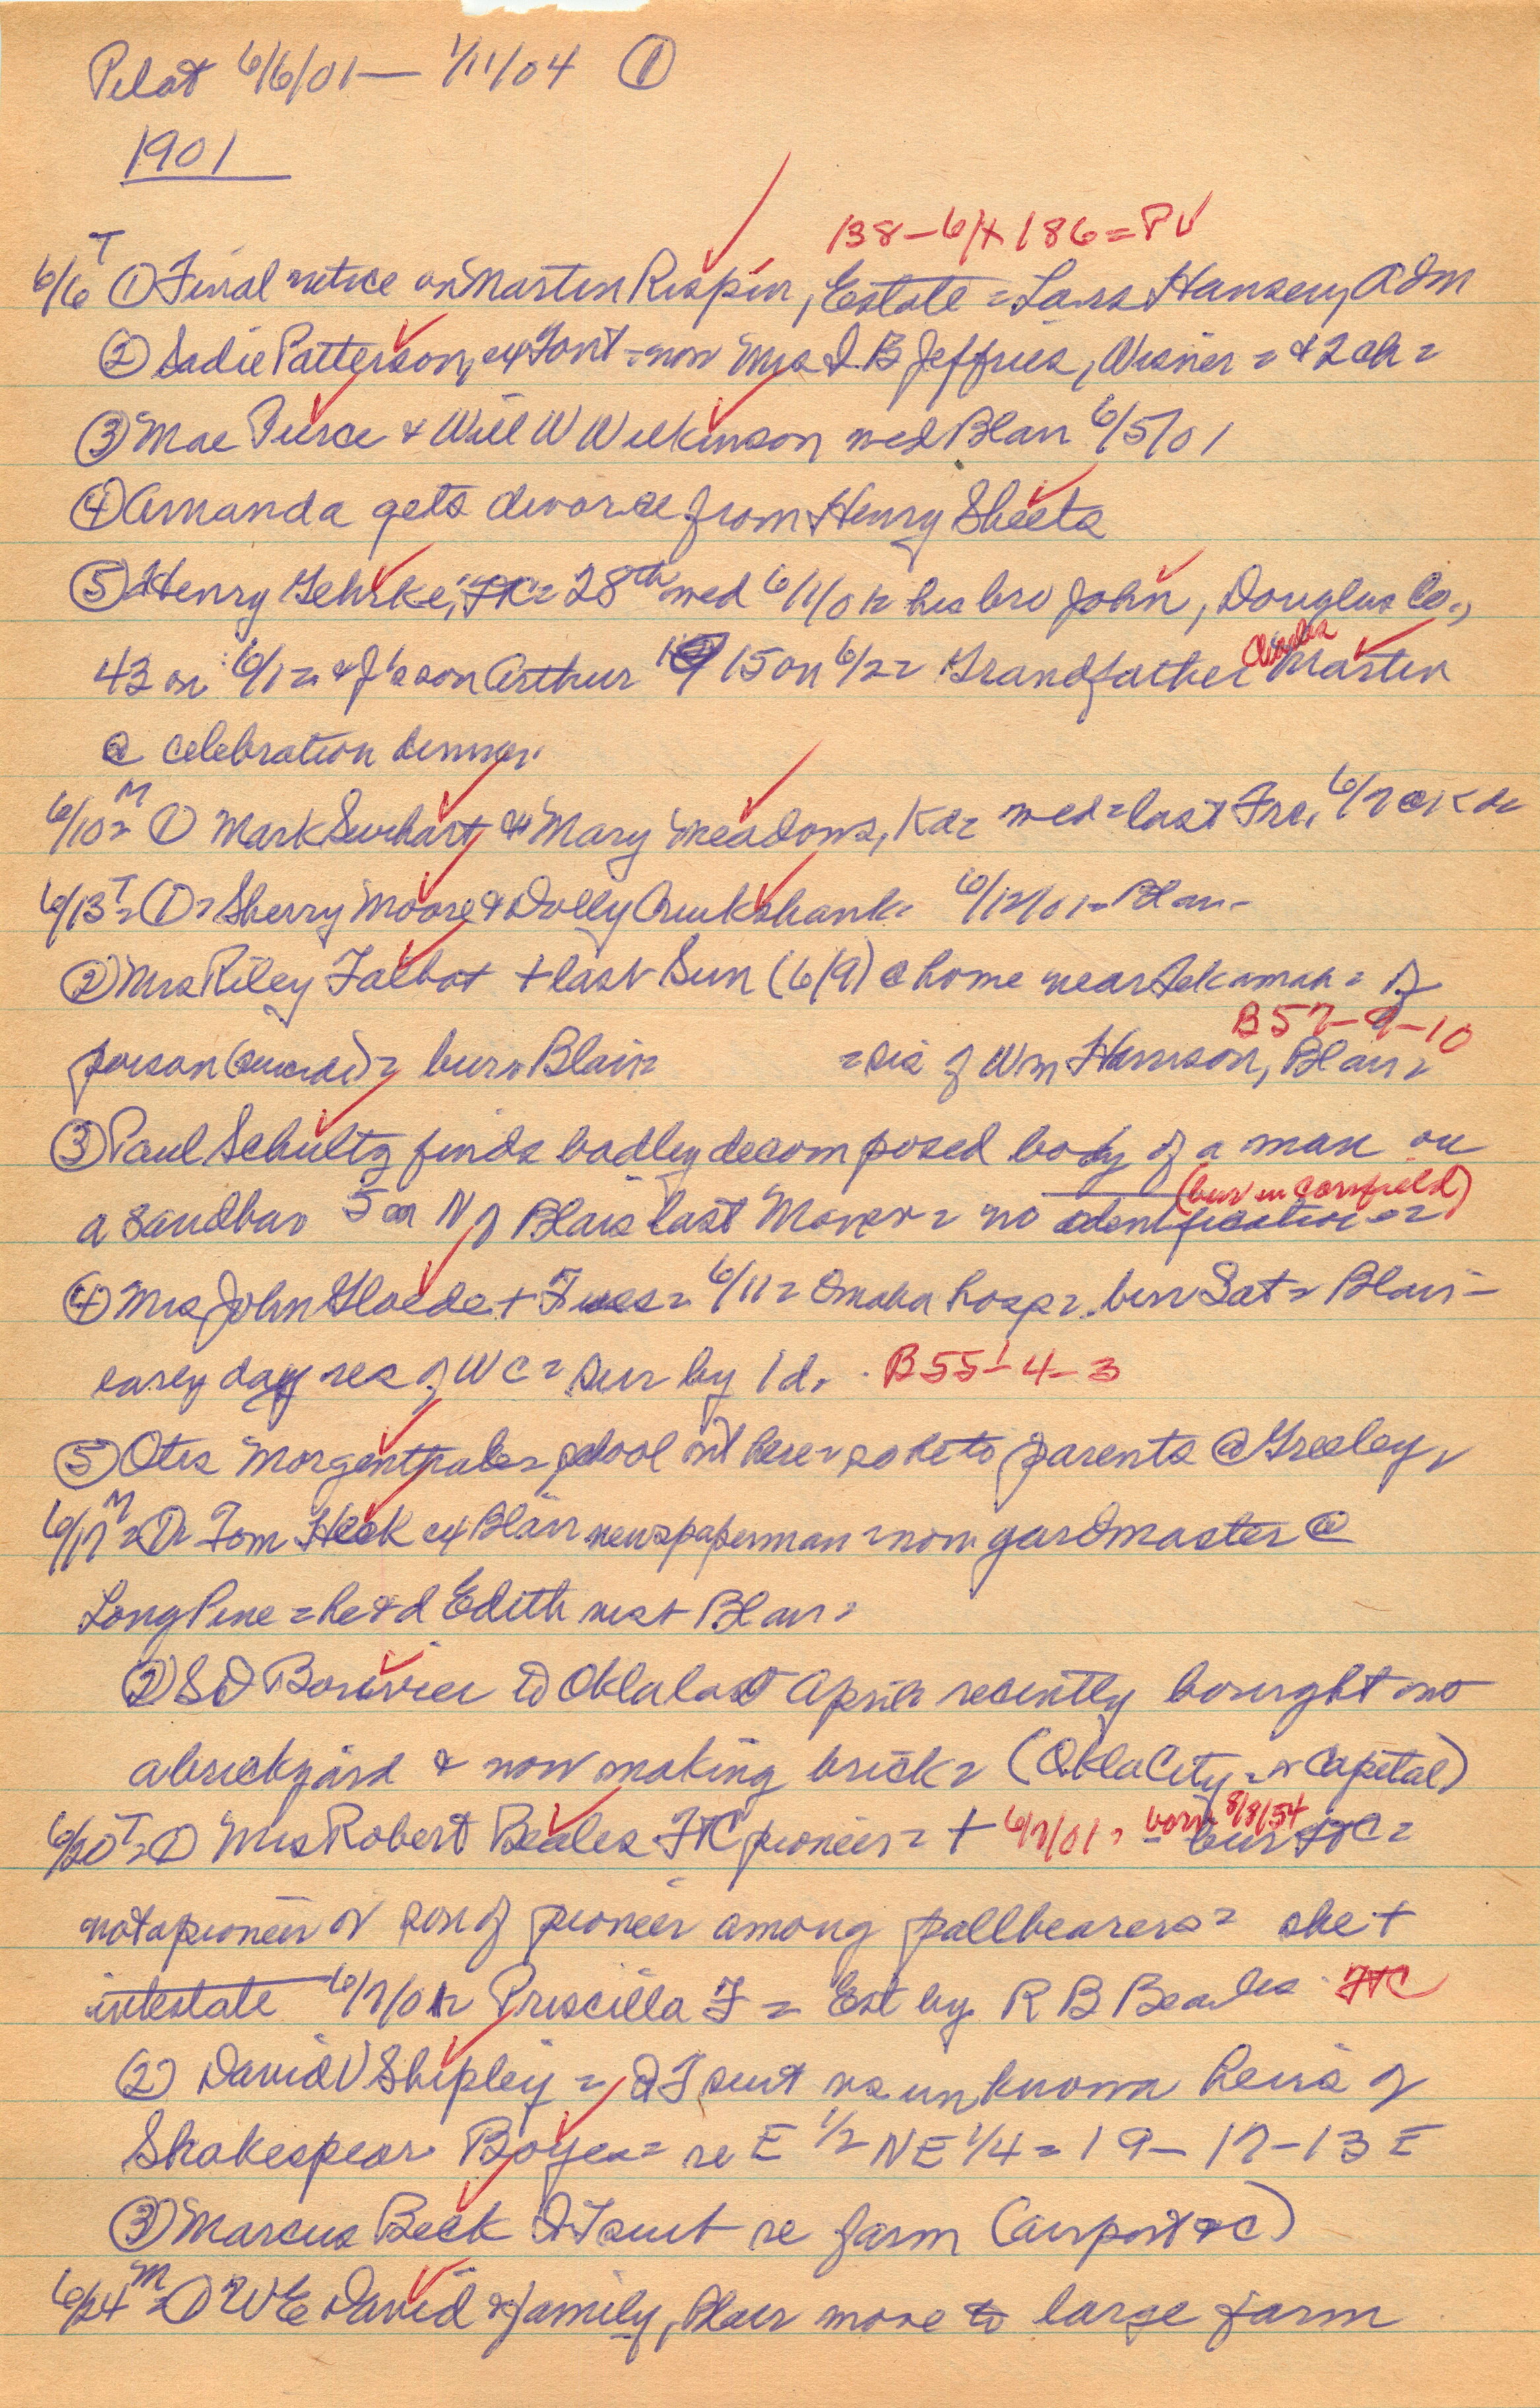 Pilot 6/6/01 — 1/11/04 ①
1901
138-6/+186=P√
6/6 T ① Final notice on Marten Rispin, Estate = Lars Hansen, Adm
② Sadie Patterson, ex Font = now Mrs I B Jeffries, Wisner = & 2 ch =
③ Mae Pierce & Will W Wilkinson wed Blair 6/5/01
④ Amanda gets divorce from Henry Sheets
⑤ Henry Gehrke, = 28th wed 6/1/01 = his bro John, Douglas Co.,
43 on 6/1 = & J's son Arthur 15 on 6/2 = Grandfather Marten
@ celebration dinner.
6/10 = M ① Mark Swihart & Mary Meadows, Kd = wed = last Fri, 6/7 @ Kd =
6/13 T = ① = Sherry Moore & Dolly Cruikshank = 6/12/01 = Blair =
② Mrs Riley Talbot + last Sun (6/9) @ home near Tekamah = of
B57-9-10
poison = bur Blair = = sis of Wm Harrison, Blair =
③ Paul Schultz finds badley decomposed body of a man on
(bur in cornfield)
a sandbar 5 m N of Blair last Mon = no identification =
④ Mrs John Gloede + Tues = 6/11 = Omaha hosp = bur Sat = Blair =
earey day res of WC = sur by 1 d. B55-4-3
⑤ Otis Morgenthaler school out here = so he to parents @ Greeley,
6/17 M = ① Tom Heck ex Blair newspaperman = now yardmaster @
Long Pine = he & d Edith visit Blair =
② S D Bouvier to Okla last April recently bought out
a brickyard & now making brick = (Okla City = Capital)
6/20 T = ① Mrs Robert Beales FTC pioneer = + 6/7/01 = born 8/8/54 bur FTC =
not a pioneer or son of pioneer among pallbearers = she +
intestate 6/7/01 = Priscilla F = Est by R B Beales FTC
② David V Shipley = QT suit vs unknown heirs of
Shakespear Boyes = re E 1/2 NE 1/4 = 19-17-13 E
③ Marcus Beck QT suit re farm (airport &c)
6/24 M = ① W E David & family, Blair move to large farm